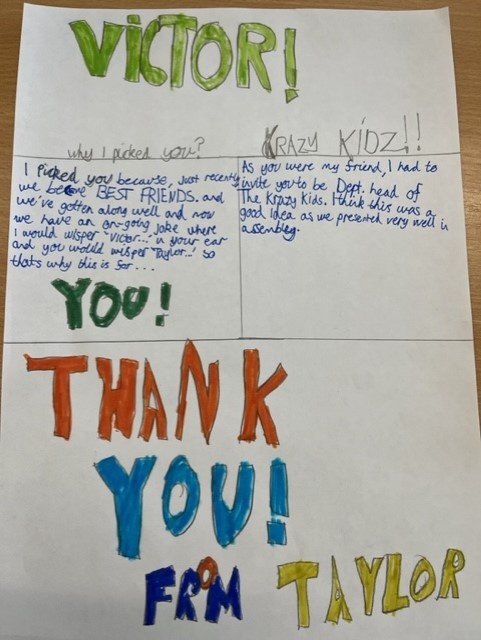 VICTOR!
why I picked you?
I picked you because, just recently
we became BEST FRIENDS. and
we've gotten along well and now
we have an on-going joke where
I would wisper "Victor..." in your ear
and you would wisper "Taylor..." so
thats why this is for...
YOU!
KRAZY KIDZ!!
As you were my friend, I had to
invite you to be Dept. head of
The Krazy Kids. I think this was a
good idea as we presented very well in
assembly.
THANK
YOU!
FROM TAYLOR